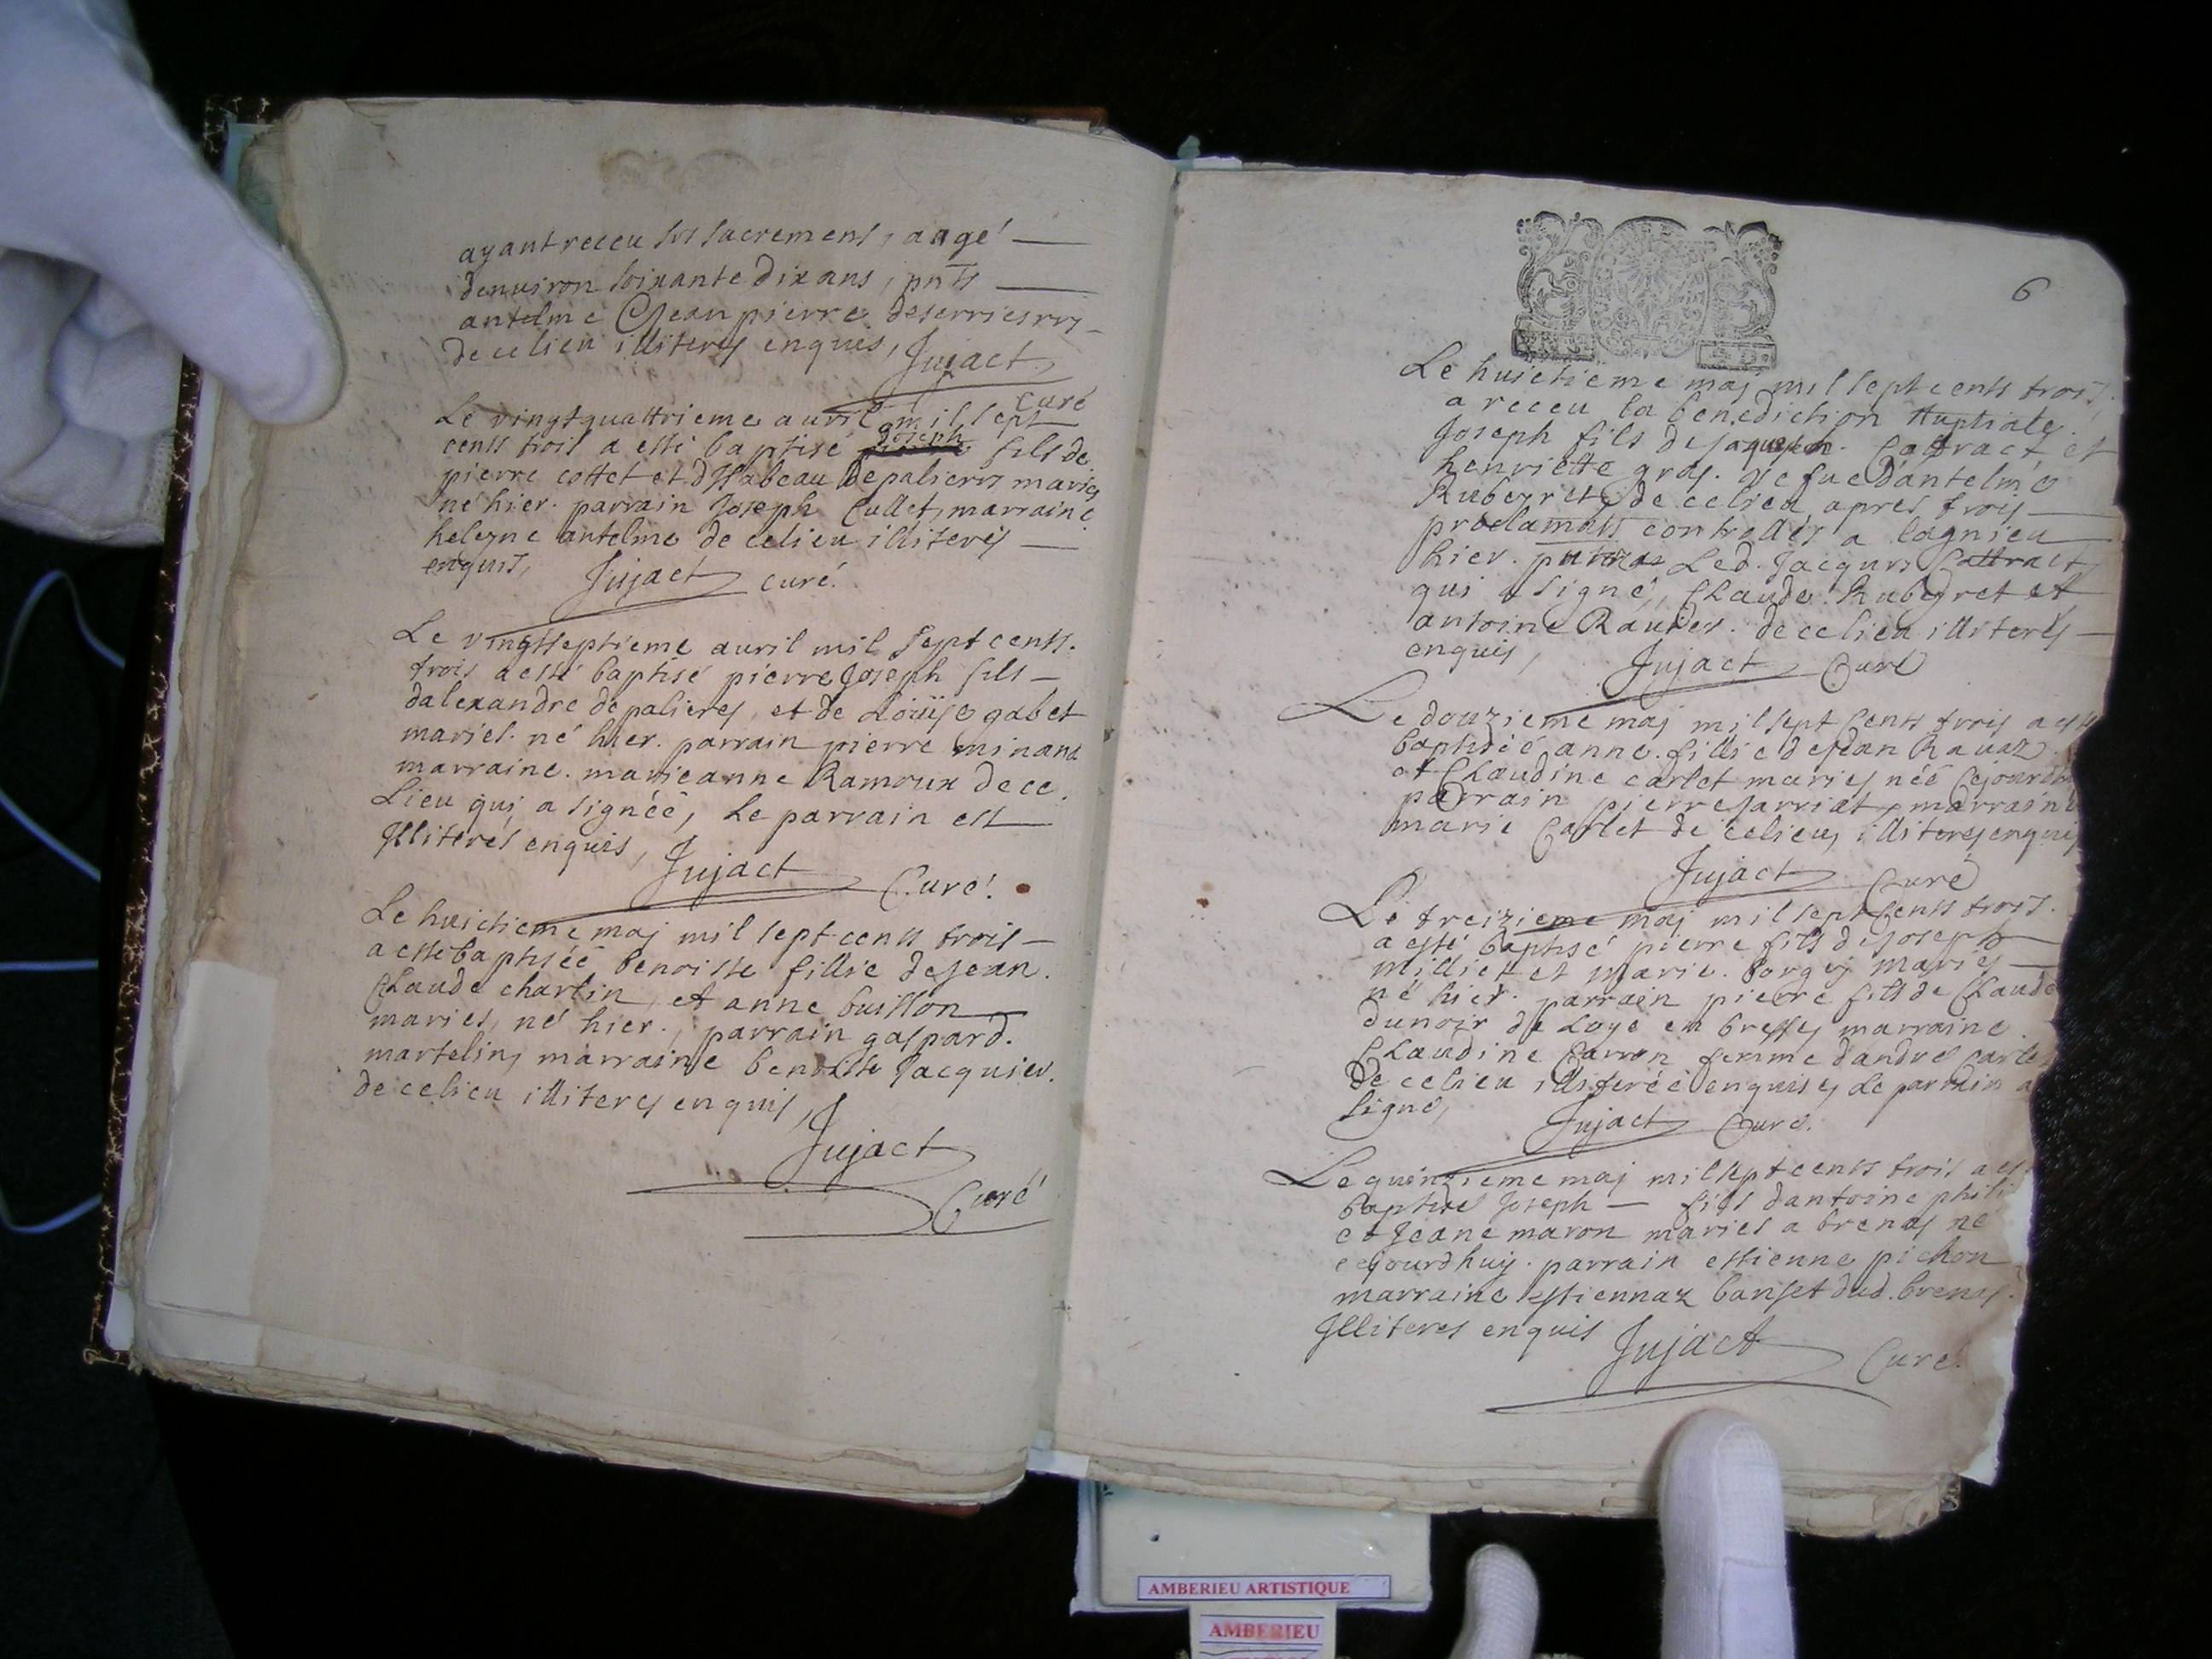 ayant receu ses sacrements, aagé
denuiron soixante dix ans, pnts
antelme & Jean pierre
de ce lieu illiteres enquis, Jujact
curé
Le vingtquattrieme auril mil sept
cents trois a esté baptisé Joseph fils de
pierre cottet et dYsabeau Depalieres maries
né hier. parrain Joseph Cullet, marraine
heleyne antelme de ce lieu illiterés
enquis, Jujact curé.
Le vingtseptieme auril mil sept cents.
trois a esté baptisé pierre Joseph fils
dalexandre depalieres, et de Loüise gabet
mariés. né hier. parrain pierre minand
marraine. marieanne Ramoux de ce.
Lieu qui a signéé, Le parrain est
Jlliteres enquis, Jujact Curé.
Le huictieme maj mil sept cents trois
a esté baptiséé benoiste fillie de Jean.
Claude charlin, et anne buisson
maries, né hier., parrain gaspard.
martelin, marrainse benoiste Jacquier.
de ce lieu illiteres enquis,
Jujact
Curé
6
Le huictieme maj mil sept cents trois,
a receu la benediction Nuptiale.
Joseph fils de Cattract et
henriette gros. vefue dantelme
Rubeyret, de ce lieu, apres trois
proclamats controllés a lagnieu
hier. Led. Jacques Cattract
qui a signé, Claude Rubeyret et
antoine Rauier. de ce lieu illiterés
enquis, Jujact Curé
Le douzieme maj mil sept Cents trois a esté
baptiséé anne. fillie de Jean Rauaz.
et Claudine carlet maries néé Cejourdh
parrain pierre Jarriat, marraine
marie Carlet de ce lieu, illiteres enquis
Jujact Curé
Le treizieme maj mil sept Cents trois.
a esté baptisé pierre fils de Joseph
milliet et marie. borgey maries
né hier. parrain pierre fils de Claude
dunoir de Loye en bresse, marraine.
Claudine Carron femme dandré carle
De ce lieu illiteréé enquise, Le parrain a
signé, Jujact Curé.
Le quinzieme maj mil sept cents trois a es
baptisé Joseph — fils dantoine phili
et Jeane maron mariés a brenas né
cejourdhuy. parrain estienne pichon
marraine estiennaz banset dud. brenas.
Jlliteres enquis Jujact Curé.
AMBERIEU ARTISTIQUE
AMBERIEU